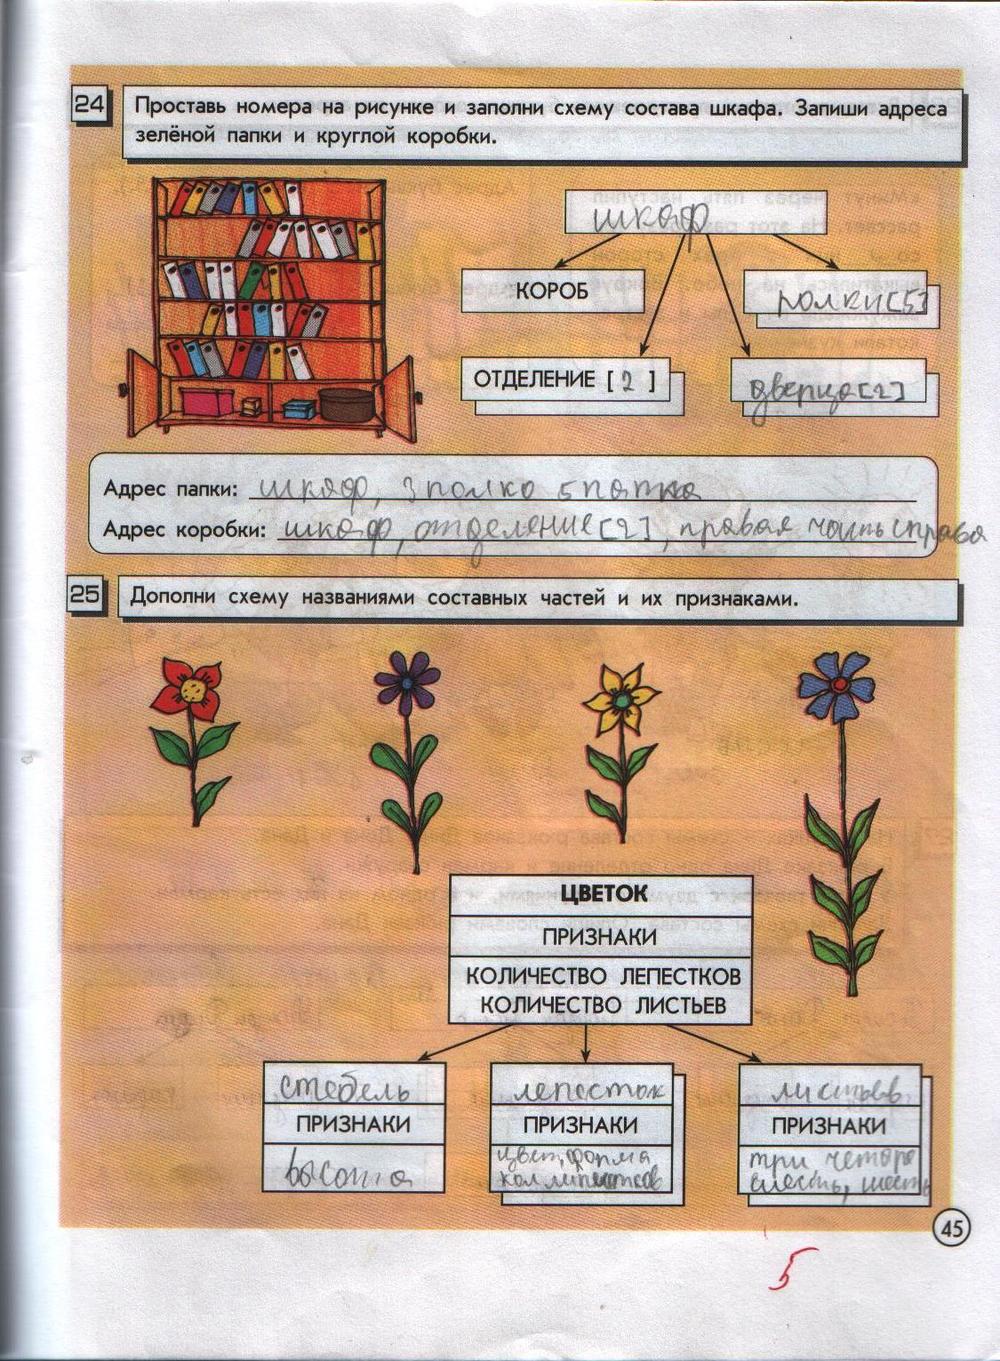 24
Проставь номера на рисунке и заполни схему состава шкафа. Запиши адреса
зелёной папки и круглой коробки.
шкаф
КОРОБ
полки[5]
ОТДЕЛЕНИЕ [ 2 ]
дверца[2]
Адрес папки: шкаф, 3 полка 5 папка
Адрес коробки: шкаф, отделение[2], правая часть справа
25
Дополни схему названиями составных частей и их признаками.
ЦВЕТОК
ПРИЗНАКИ
КОЛИЧЕСТВО ЛЕПЕСТКОВ
КОЛИЧЕСТВО ЛИСТЬЕВ
стебель
ПРИЗНАКИ
высота
лепесток
ПРИЗНАКИ
цвет, форма
кол лепестков
листьев
ПРИЗНАКИ
три четыре
шесть
45
5